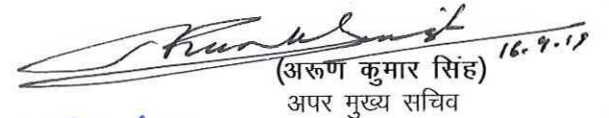 16.9.19
(अरूण कुमार सिंह)
अपर मुख्य सचिव